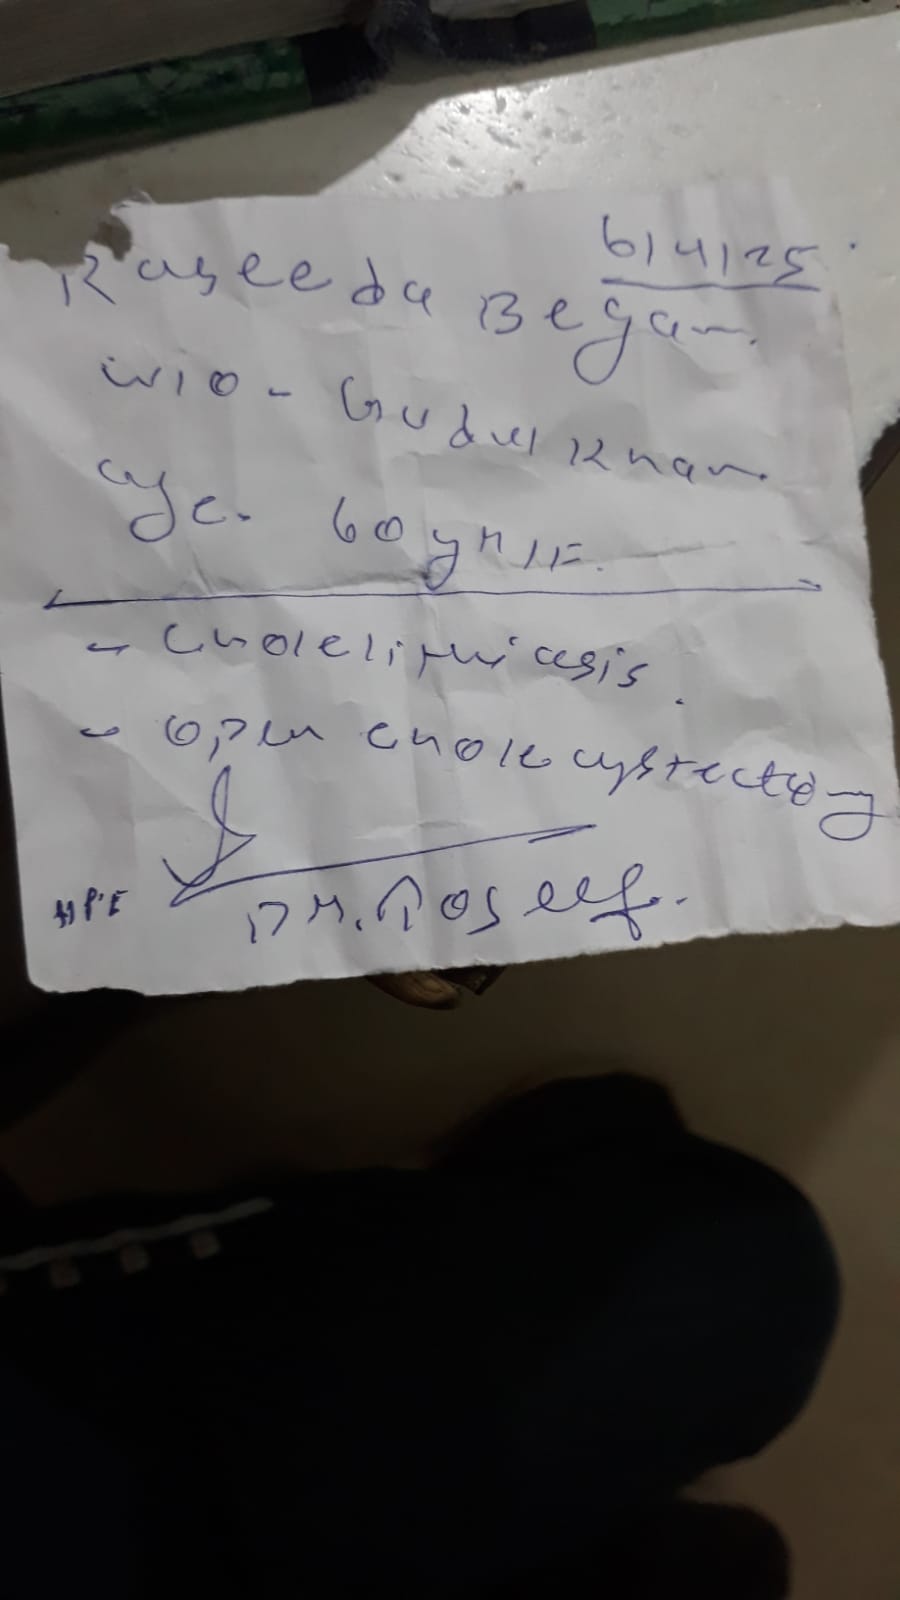 6/4/25
Raseeda Begam
W/O - Gudul Khan
age. 60 yr/F.
- Cholelithiasis.
- open cholecystectomy
HPE
Dr. Toseef.